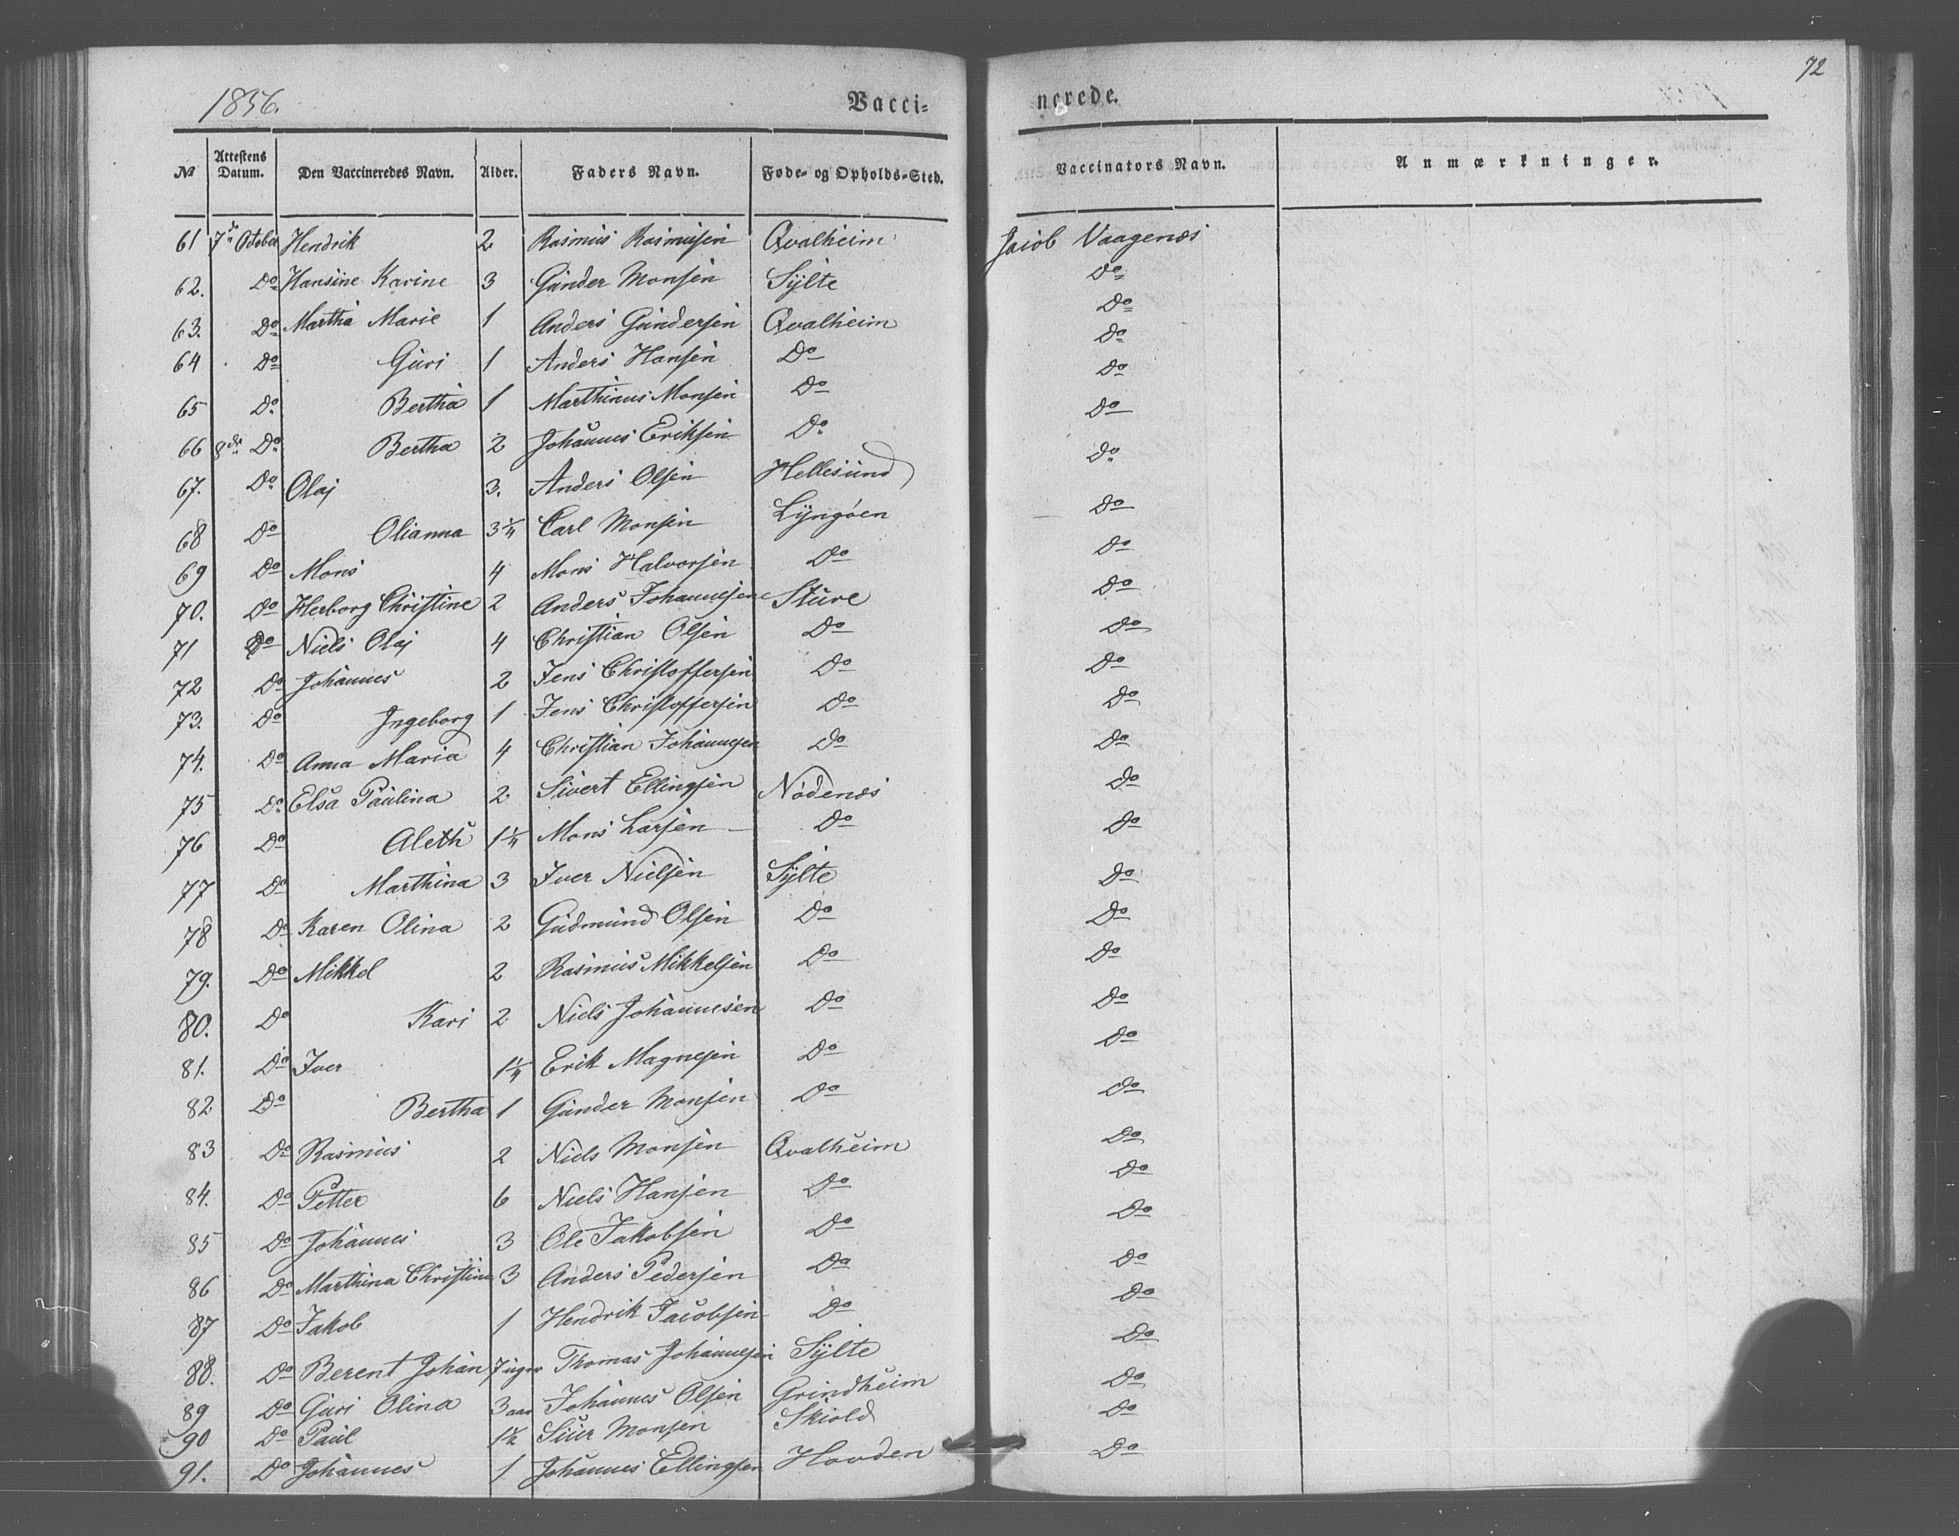 72
1856. Vacci= nerede.
№ Attestens Datum. Den Vaccineredes Navn. Alder. Faders Navn. Føde- og Opholds-Sted. Vaccinators Navn. Anmærkninger.
61 7de October Hendrik 2 Rasmus Rasmusen Qvalheim Jacob Vaagenæs
62. Do Hansine Karine 3 Gunder Monsen Sylte Do
63. Do Martha Marie 1 Anders Gundersen Qvalheim Do
64 Do Guri 1 Anders Hansen Do Do
65 Do Bertha 1 Marthinus Monsen Do Do
66 8de Do Bertha 2 Johannes Eriksen Do Do
67. Do Olaj 3. Anders Olsen Hellesund Do
68 Do Olianna 3¼ Carl Monsen Lyngøen Do
69 Do Mons 4 Mons Halvorsen Do Do
70. Do Herborg Christine 2 Anders Johannesen Sture Do
71 Do Niels Olaj 4 Christian Olsen Do Do
72 Do Johannes 2 Jens Christoffersen Do Do
73. Do Ingeborg 1 Jens Christoffersen Do Do
74. Do Anna Maria 4 Christian Johannesen Do Do
75 Do Elsa Paulina 2 Sivert Ellingsen Nødenæs Do
76 Do Aleth 1¼ Mons Larsen Do Do
77 Do Marthina 3 Iver Nielsen Sylte Do
78 Do Karen Olina 2 Gudmund Olsen Do Do
79. Do Mikkel 2 Rasmus Mikkelsen Do Do
80. Do Kari 2 Niels Johannesen Do Do
81. Do Iver 1¼ Erik Magnesen Do Do
82 Do Bertha 1 Gunder Monsen Do Do
83 Do Rasmus 2 Niels Monsen Qvalheim Do
84. Do Petter 6 Niels Hansen Do Do
85 Do Johannes 3 Ole Jakobsen Do Do
86 Do Marthina Christine 3 Anders Pedersen Do Do
87 Do Jakob 1 Hendrik Jacobsen Do Do
88. Do Berent Johan 7 uger Thomas Johannesen Sylte Do
89 Do Guri Olina 3 aar Johannes Olsen Grindheim Do
90 Do Paul 1½ Siur Monsen Skiold Do
91. Do Johannes 1 Johannes Ellingsen Hovden Do